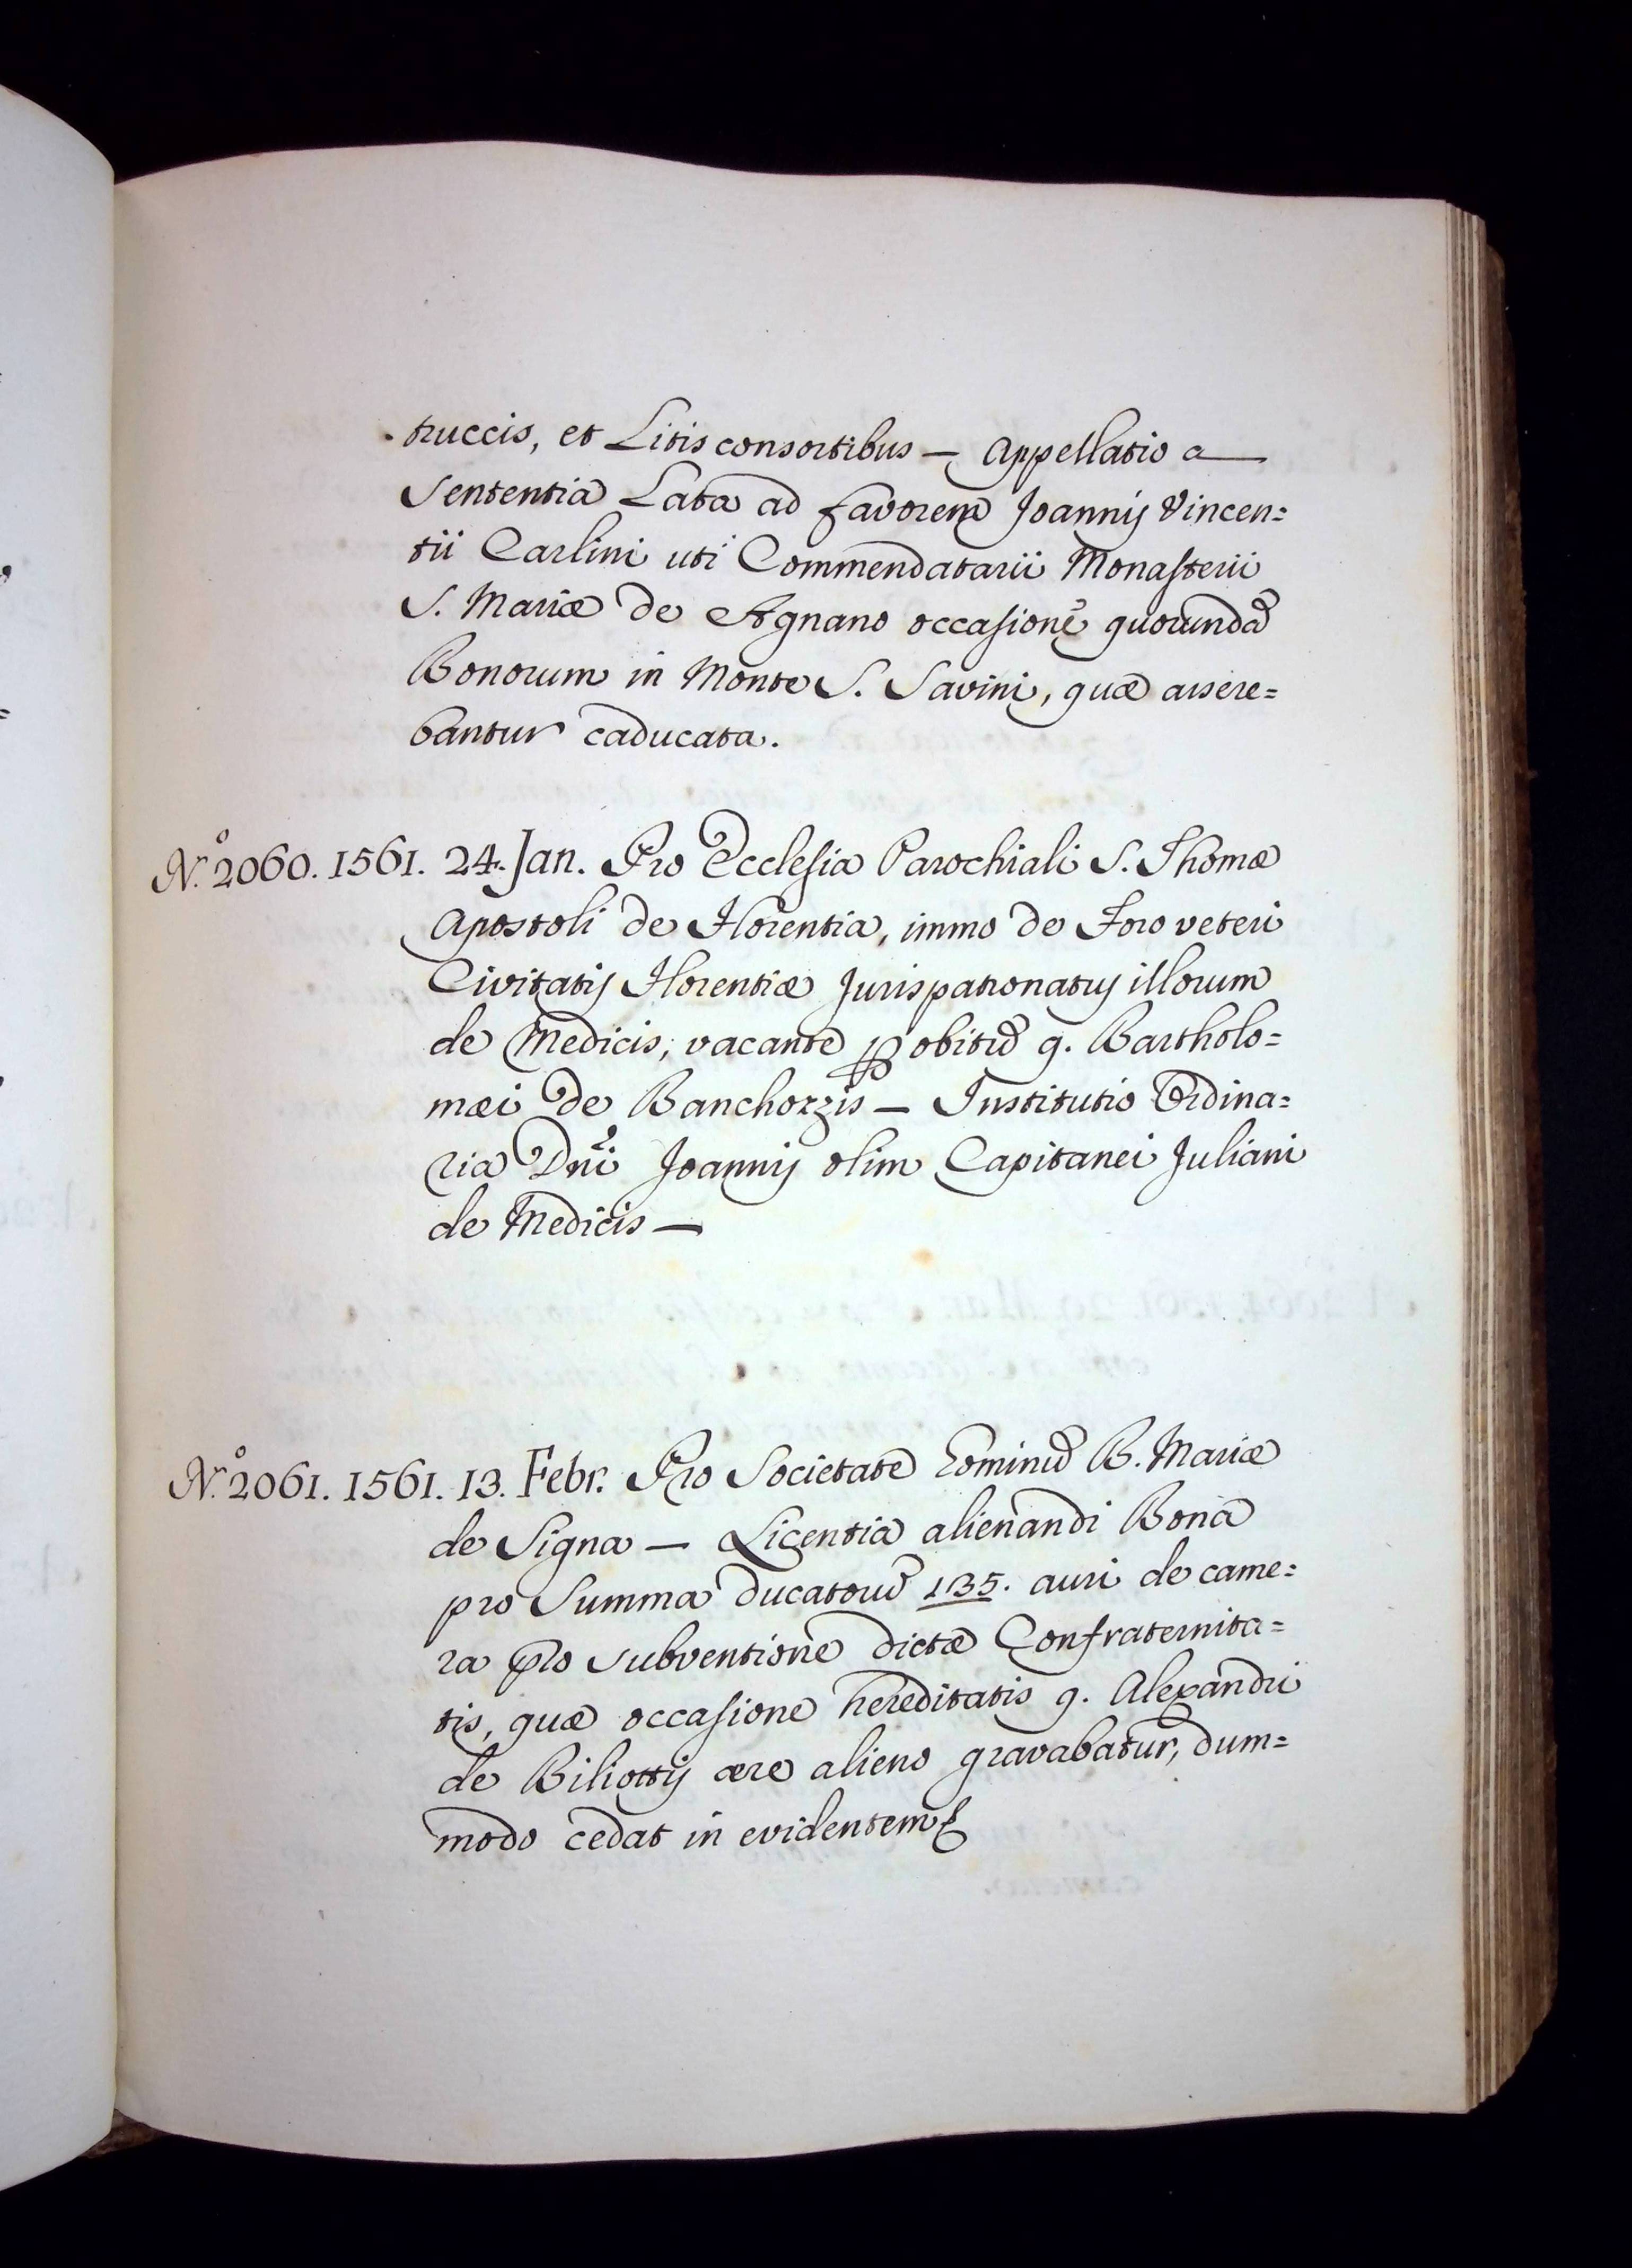 truccis, et Litis consortibus — Appellatio a
Sententia Lata ad favorem Joannis Vincen=
tii Carlini uti Commendatarii Monasterii
S. Mariæ de Agnano occasione quorundã
Bonorum in Monte S. Savini, quæ assere=
bantur caducata.
N.º 2060. 1561. 24. Jan. Pro Ecclesia Parochiali S. Thomæ
Apostoli de Florentia, immo de Foro veteri
Civitatis Florentiæ Jurispatronatus illorum
de Medicis, vacante ꝑ obitũ q. Bartholo=
mæi de Banchozzis — Institutio Ordina=
ria Dñi Joannis olim Capitanei Juliani
de Medicis —
N.º 2061. 1561. 13. Febr. Pro Societate hominũ B. Mariæ
de Signa — Licentia alienandi Bona
pro Summa ducatorũ 135. auri de came=
ra pro subventione dictæ Confraternita=
tis, quæ occasione hereditatis q. Alexandri
de Biliottis ære alieno gravabatur, dum=
modo cedat in evidentem